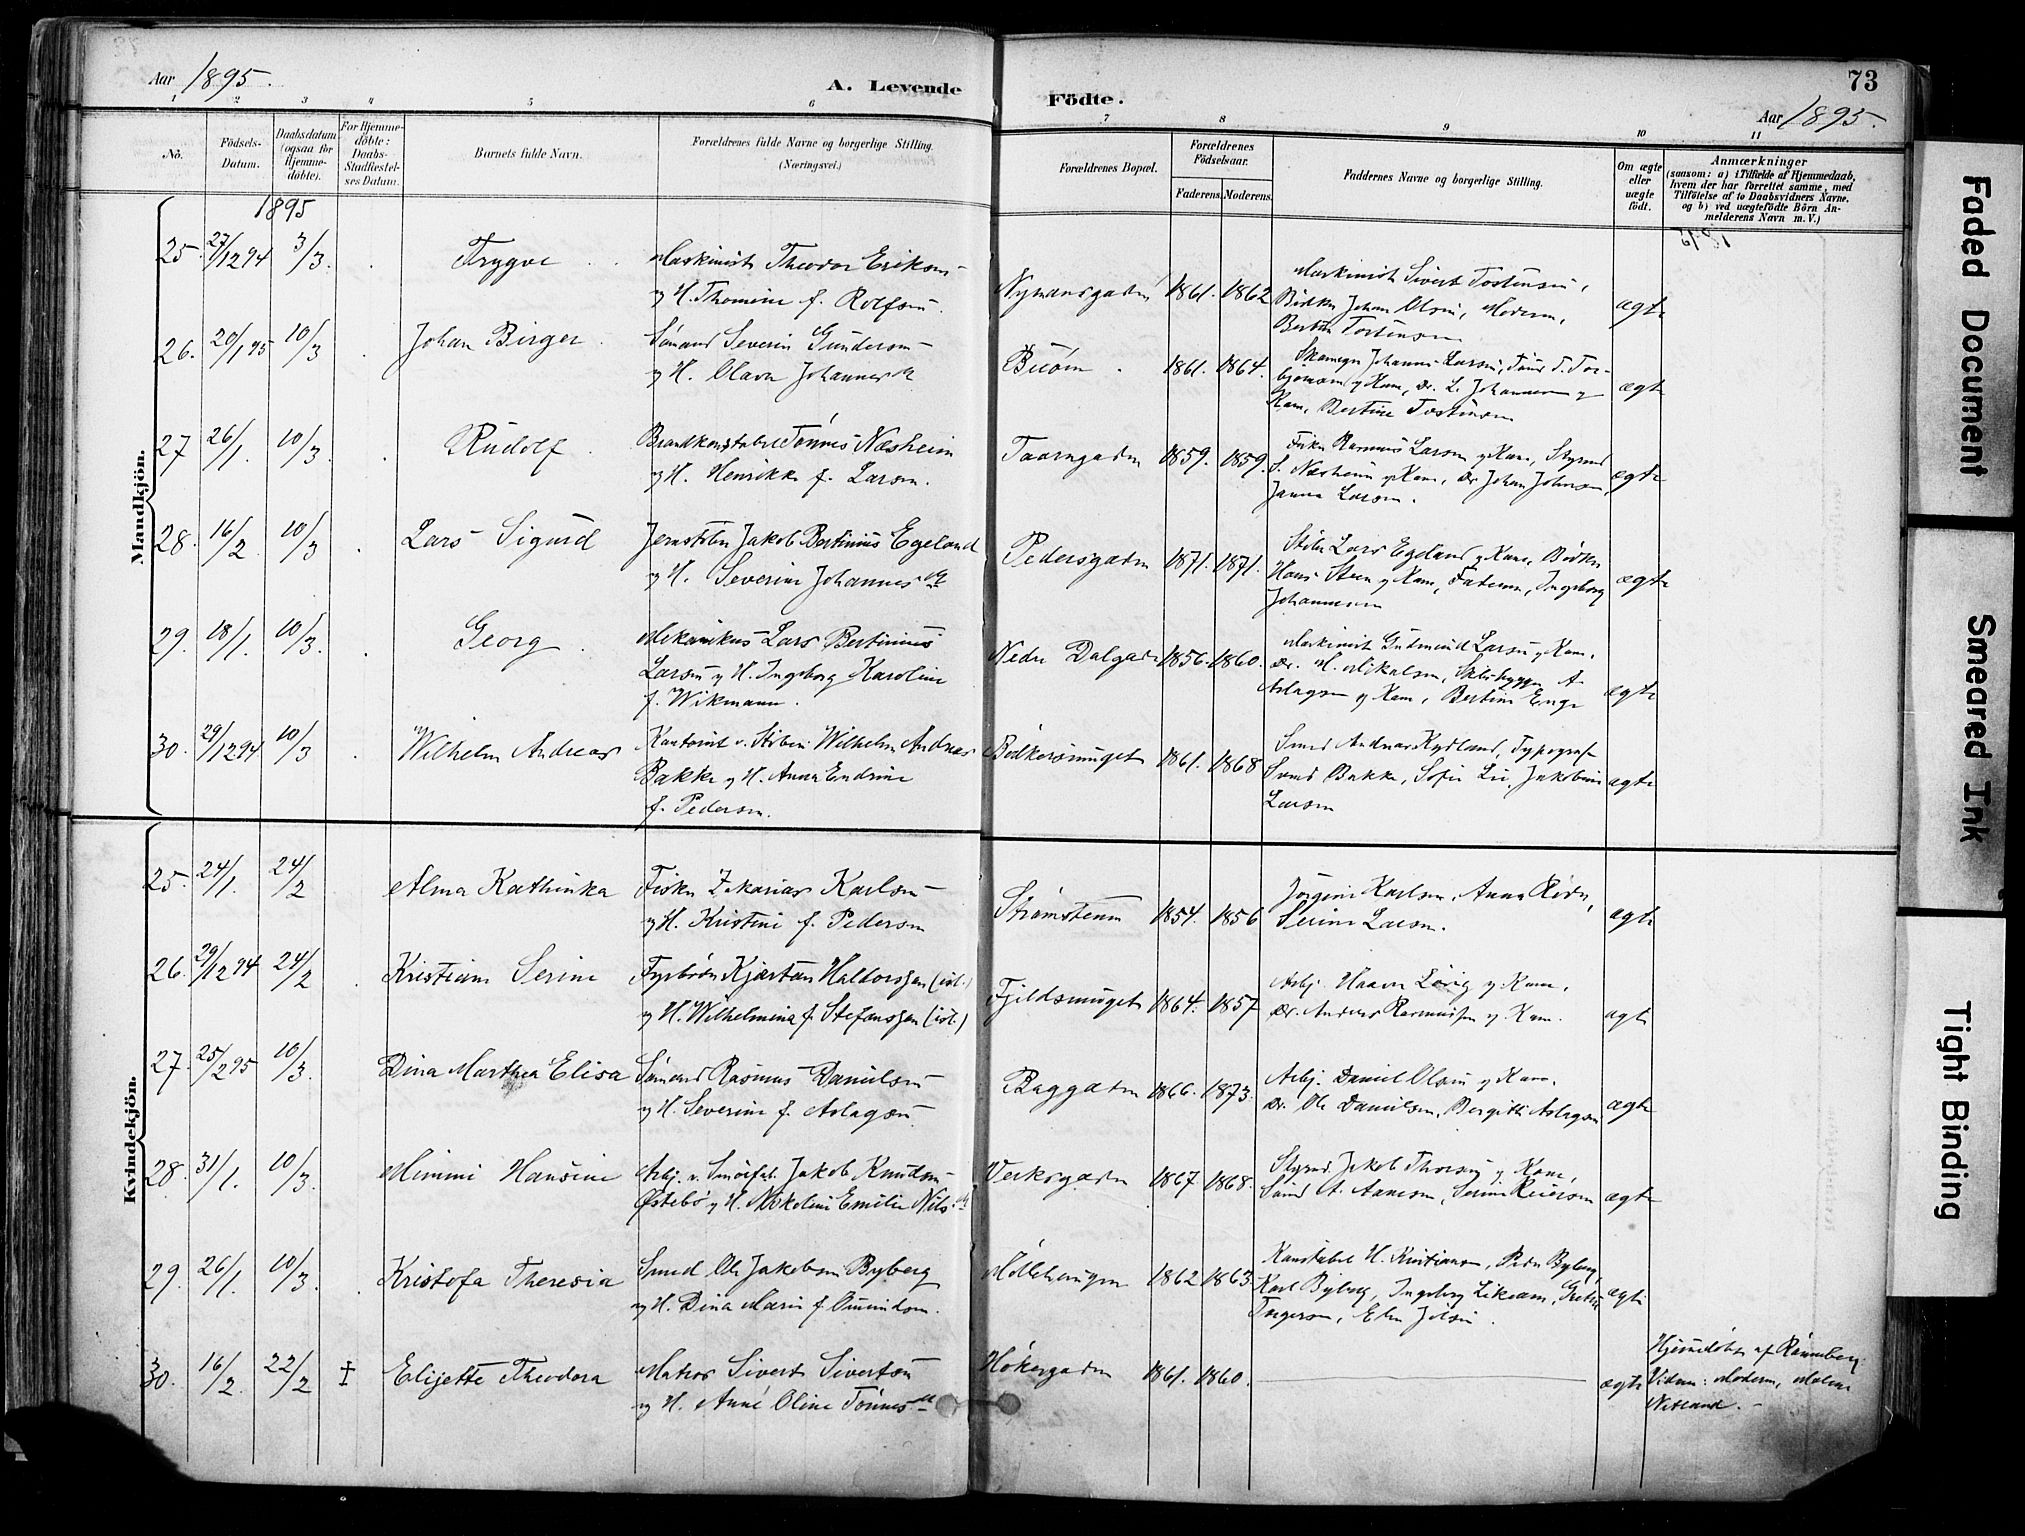 Aar 1895.
A. Levende Födte.
73
Aar 1895.
1 2 3 4 5 6 7 8 9 10 11
No.
Födsels-Datum.
Daabsdatum (ogsaa for Hjemme-döbte).
For Hjemme-döbte: Daabs-Stadfæstel-ses Datum.
Barnets fulde Navn.
Forældrenes fulde Navne og borgerlige Stilling. (Næringsvei.)
Forældrenes Bopæl.
Forældrenes Födselsaar.
Faderens. Moderens.
Faddernes Navne og borgerlige Stilling.
Om ægte eller uægte födt.
Anmærkninger
(saasom: a) i Tilfælde af Hjemmedaab, hvem der har forrettet samme, med Tilföielse af to Daabsvidners Navne. og b) ved uægtefödte Börn An-melderens Navn m. V.)
Mandkjön.
1895
25. 27/12 94 3/3. Trygve Maskinist Theodor Eriksen Nymansgaden 1861. 1862 Maskinist Sivert Tostensen, ægte
og H. Thomine f. Rolfsen. Bødker Johan Olsen, Moderen,
Tostensen
26. 20/1 95 10/3 Johan Birger Sømand Severin Gundersen Buøen 1861. 1864. Johannes Larsen, ægte
og H. Olava Johannesdt
Kone, Bertine Tostensen
27 26/1. 10/3. Rudolf Brandkonstabel Tønnes Næsheim Taarngaden 1859. 1859. Fisker Rasmus Larsen og Kone, Styrmd ægte
og H. Henrikke f. Larsen. Næsheim og Kone, Dr. Johan Johnsen,
Janna Larsen.
28. 16/2. 10/3 Lars Sigurd Jernstøber Jakob Bertinius Egeland Pedersgaden 1871. 1871. Lars Egeland og Kone, Bødker ægte
og H. Severine Johannesdt Hans Steen og Kone, Faderen, Ingeborg
Johannesen
29. 18/1. 10/3. Georg Mekanikus Lars Bertinius Nedre Dalgade 1856. 1860. Maskinist Gudmund Larsen og Kone, ægte
Larsen og H. Ingeborg Karoline Dr. M. Mikalsen, Skibsbygger A.
f. Wikmann. Aslagsen og Kone, Bertine Enge
30. 29/12 94 10/3 Wilhelm Andreas Kontorist Wilhelm Andreas Bødkersmuget 1861. 1868 Smed Andreas Kydland, Typograf ægte
Bakke og H. Anna Endrine Bakke, Sofie Lie, Jakobine
f. Pedersen. Larsen
Kvindekjön.
25. 24/1. 24/2 Alma Kathinka Fisker Zakarias Karlsen Strømstenen 1854. 1856 Jørgine Karlsen, Anna ægte
og H. Kristine f. Pedersen Serine Larsen.
26. 29/12 94 24/2 Kristiane Serine Fyrbøder Kjartan Haldorssen (isl.) Fjeldsmuget 1864. 1857 Arbj. Haavar og Kone, ægte
og H. Wilhelmina f. Stefanssen (isl.) Dr. Anders Rasmussen og Kone.
27. 25/2 95 10/3. Dina Marthea Elisa Sømand Rasmus Danielsen Baggaden 1866. 1873. Arbj. Daniel Olsen og Kone. ægte
og H. Severine f. Aslagsen Dr. Ole Danielsen, Bergitte Aslagsen
28. 31/1. 10/3. Mimmi Hansine Arbj. v. Smørfab. Jakob Knudsen Verksgaden 1867. 1868. Styrmd. Jakob Thorsen og Kone, ægte
Østebø og H. Nikoline Emilie Nilsdt A. Aanesen, Serine Reiersen
29. 26/1. 10/3. Kristofa Theresia Smed Ole Jakobsen Byberg Møllehaugen 1862 1863. Konstabel H. Kristiansen, Peder Byberg, ægte
og H. Dina Marie f. Omundsen. Karl Byberg, Ingeborg
Torgersen,
30. 16/2. 22/2 ‡ Elisette Theodora Matros Sivert Sivertsen Høkergaden 1861. 1860. ægte Hjemmedøbt af Rønneberg.
og H. Anne Oline Tønnesdt Vidner: Moderen, Malene
Netland.
Faded Document
Smeared Ink
Tight Binding